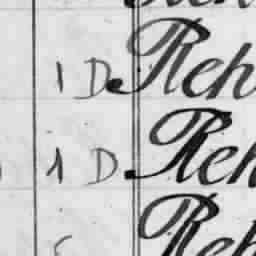 1 D. Reh
1 D. Reh
Reh